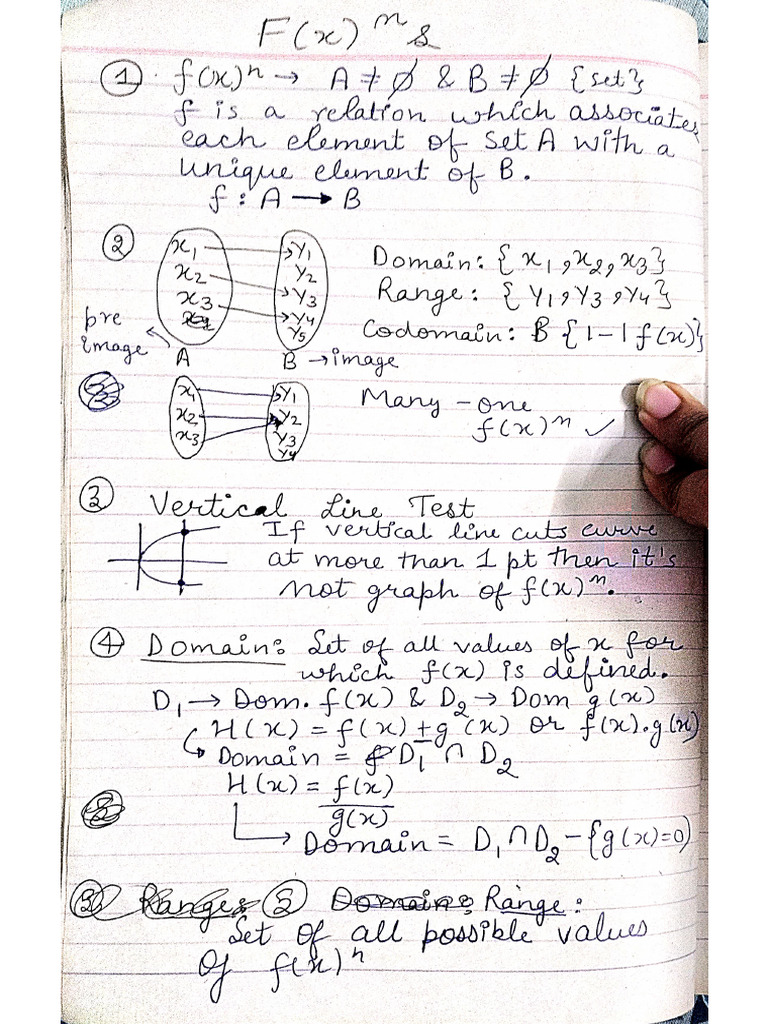 F(x)ⁿs
① f(x)ⁿ → A ≠ ∅ & B ≠ ∅ {set}
f is a relation which associates
each element of set A with a
unique element of B.
f : A → B
② x₁ y₁
x₂ y₂
x₃ y₃
y₄
y₅
Domain: {x₁, x₂, x₃}
Range: {y₁, y₃, y₄}
Codomain: B {1-1 f(x)}
pre
image A B → image
x₁ y₁
x₂ y₂
x₃ y₃
y₄
Many - one
f(x)ⁿ ✓
③ Vertical Line Test
If vertical line cuts curve
at more than 1 pt then it's
not graph of f(x)ⁿ.
④ Domain: Set of all values of x for
which f(x) is defined.
D₁ → Dom. f(x) & D₂ → Dom g(x)
H(x) = f(x) ± g(x) or f(x).g(x)
Domain = D₁ ∩ D₂
H(x) = f(x)
g(x)
Domain = D₁ ∩ D₂ - {g(x)=0}
⑤ Range:
Set of all possible values
of f(x)ⁿ